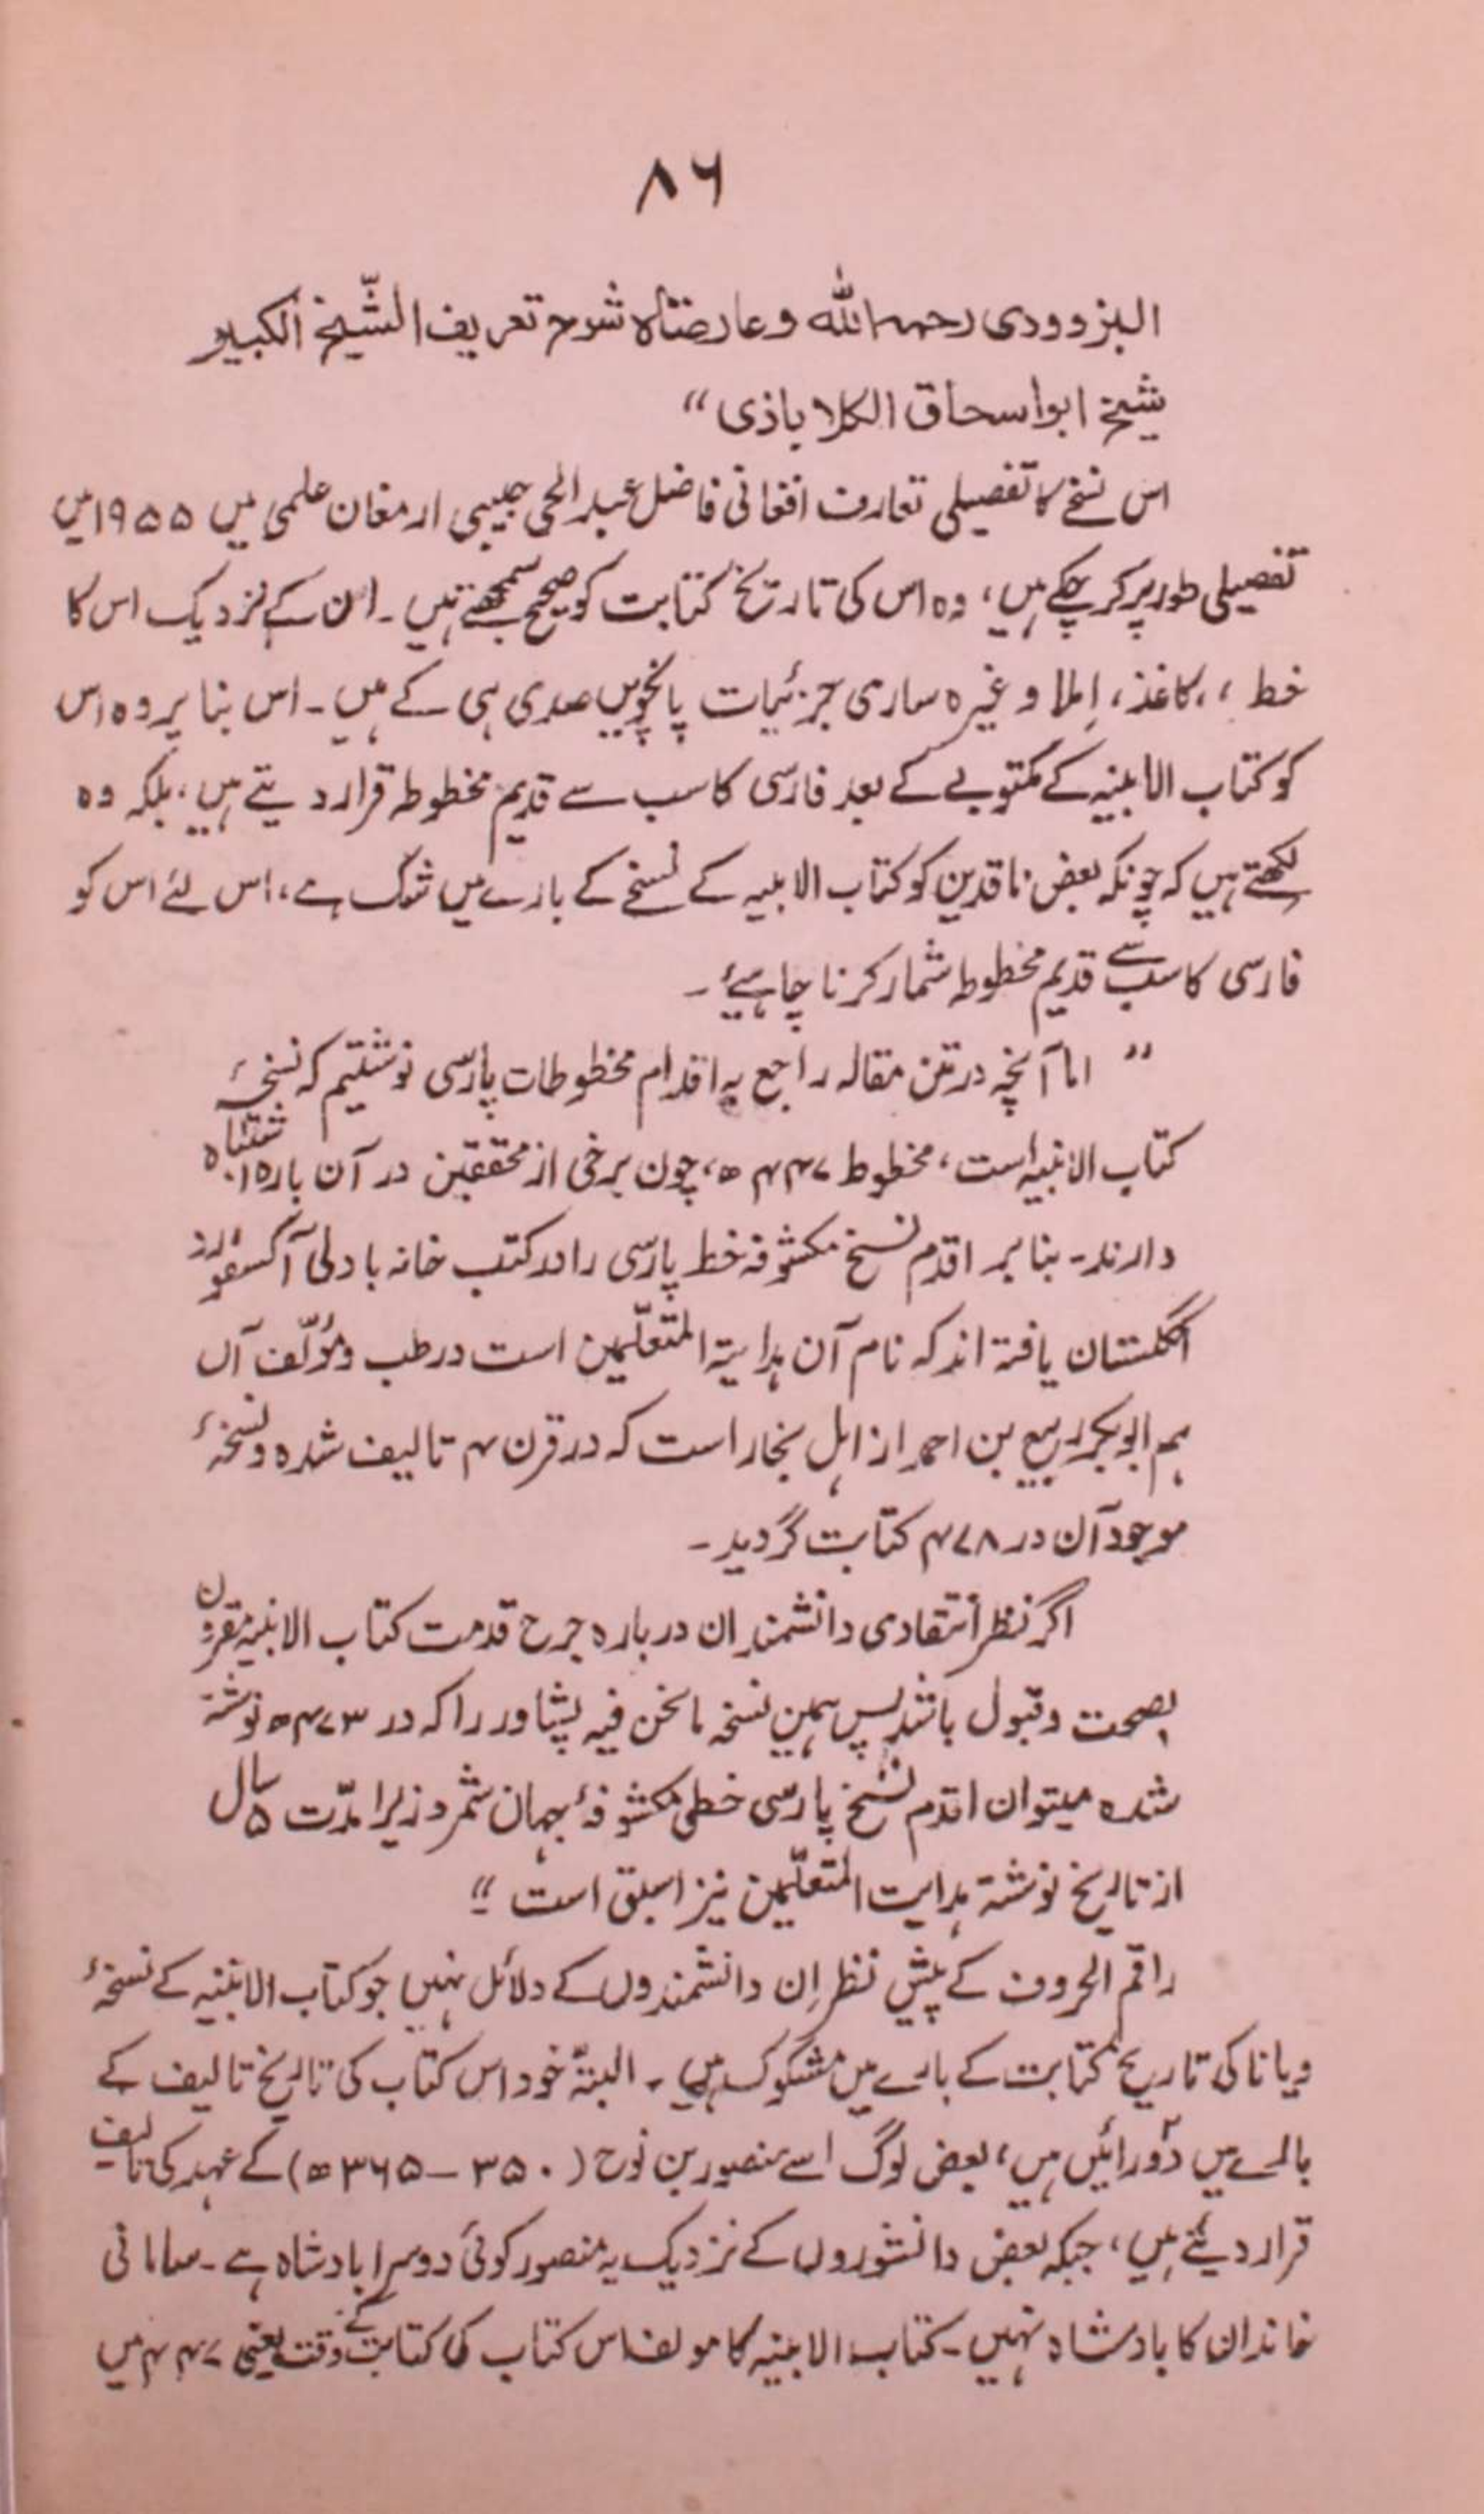 ۸۶
البزوودی رحمه الله وعارضناه شرح تعریف الشیخ الکبیر
شیخ ابواسحاق الکلاباذی“
اس نسخے کا تفصیلی تعارف افغانی فاضل عبدالحی حبیبی ارمغان علمی میں ۱۹۵۵ میں
تفصیلی طور پر کر چکے ہیں، وہ اس کی تاریخ کتابت کو صحیح سمجھتے ہیں۔ ان کے نزدیک اس کا
خط،، کاغذ، اِملا وغیرہ ساری جزئیات پانچویں صدی ہی کے ہیں۔ اس بنا پر وہ اس
کو کتاب الابنیہ کے مکتوبے کے بعد فارسی کا سب سے قدیم مخطوطہ قرار دیتے ہیں، بلکہ وہ
لکھتے ہیں کہ چونکہ بعض ناقدین کو کتاب الابنیہ کے نسخے کے بارے میں شک ہے، اس لئے اس کو
فارسی کا سب سے قدیم مخطوطہ شمار کرنا چاہیئے۔
”اما آنچہ در متن مقالہ راجع بہ اقدام مخطوطات پارسی نوشتیم کہ نسخۂ
کتاب الابنیہ است، مخطوط ۴۴۷ھ، چون برخی از محققین در آن بارہ اشتباہ
دارند۔ بنا بر اقدم نسخ مکشوفہ خط پارسی را در کتب خانہ بادلی آکسفورڈ
انگلستان یافتہ اند کہ نام آن ہدایتہ المتعلّمین است در طب و مؤلّف آں
ہم ابوبکر ربیع بن احمد از اہل بخارا است کہ در قرن ۴ تالیف شدہ و نسخۂ
موجود آن در ۴۷۸ کتابت گردید۔
اگر نظر انتقادی دانشمندان دربارہ جرح قدمت کتاب الابنیہ مقرون
بصحت و قبول باشد پس ہمین نسخہ مانحن فیہ پشاور را کہ در ۴۷۳ھ نوشتہ
شدہ میتوان اقدم نسخ پارسی خطی مکشوفۂ جہان شمرد زیرا مدّت ۵ سال
از تاریخ نوشتہ ہدایت المتعلّمین نیز اسبق است“
راقم الحروف کے پیش نظر اِن دانشمندوں کے دلائل نہیں جو کتاب الابنیہ کے نسخۂ
ویانا کی تاریخ کتابت کے بارے میں مشکوک ہیں۔ البتہّ خود اس کتاب کی تاریخ تالیف کے
بارے میں دو رائیں ہیں، بعض لوگ اسے منصور بن نوح (۳۵۰ – ۳۶۵ھ) کے عہد کی تالیف
قرار دیتے ہیں، جبکہ بعض دانشوروں کے نزدیک یہ منصور کوئی دوسرا بادشاہ ہے۔ سامانی
خاندان کا بادشاہ نہیں۔ کتاب الابنیہ کا مولف اس کتاب کی کتابت کے وقت یعنی ۴۴۷ میں